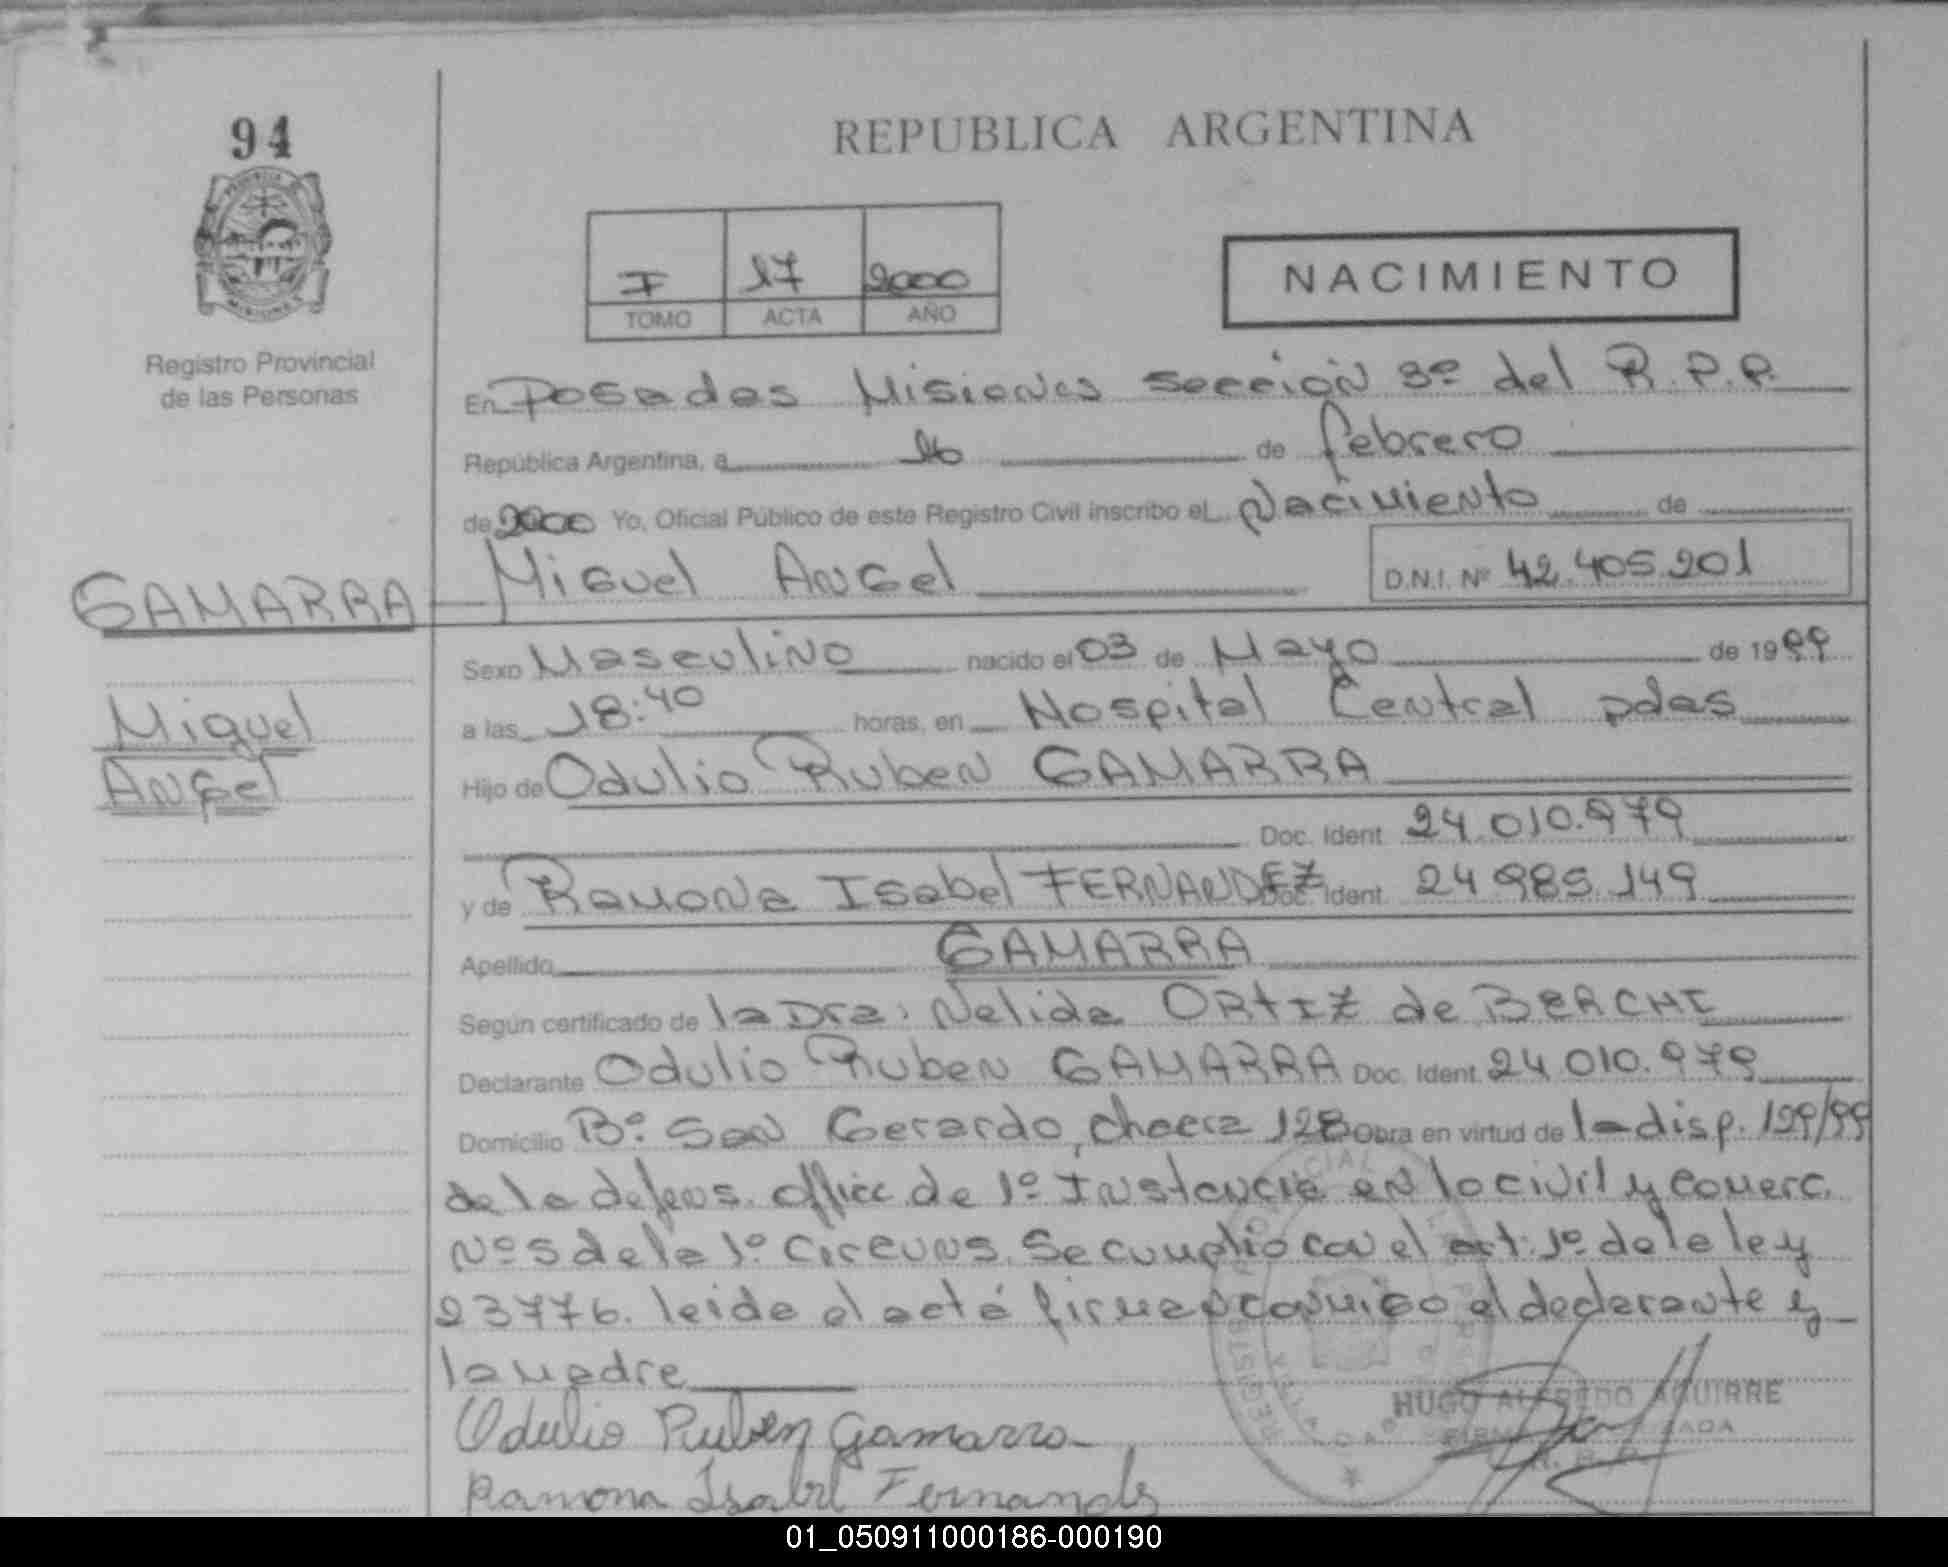 94
REPUBLICA ARGENTINA
I 17 2000
TOMO ACTA AÑO
NACIMIENTO
Registro Provincial
de las Personas
En Posadas Misiones sección 3º del R.P.P.
República Argentina, a 16 de febrero
de 2000 Yo, Oficial Público de este Registro Civil inscribo el Nacimiento de
GAMARRA Miguel Angel D.N.I. Nº 42.405.201
Sexo Masculino nacido el 03 de Mayo de 1999
Miguel
Angel
a las 18:40 horas, en Hospital Central pdas
Hijo de Odulio Ruben GAMARRA
Doc. Ident. 24.010.979
y de Ramona Isabel FERNANDEZ Doc. Ident. 24 985.149
Apellido GAMARRA
Según certificado de la Dra: Nelida ORTIZ de BERCHI
Declarante Odulio Ruben GAMARRA Doc. Ident. 24 010.979
Domicilio Bº San Gerardo, chacra 128 Obra en virtud de la disp. 129/99
de la defens. offic de 1º Instancia en lo civil y comerc.
Nº 5 de la 1º circuns. Se cumplio con el art. 1º de la ley
23776. leida el acta firman conmigo el declarante y
la madre
Odulio Ruben Gamarra
HUGO ALFREDO AGUIRRE
Ramona Isabel Fernandez
01_050911000186-000190